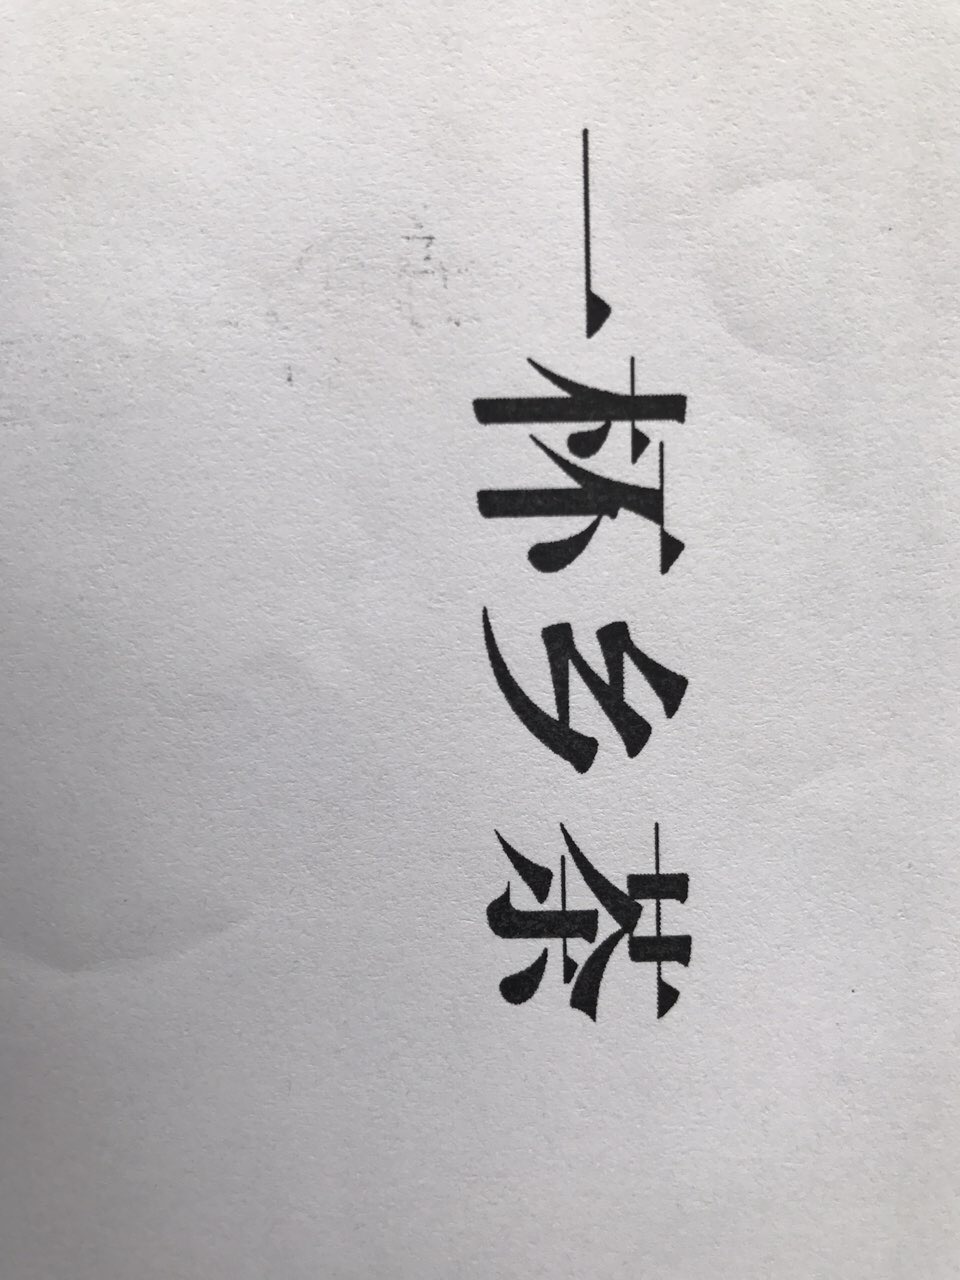 一杯乡茶